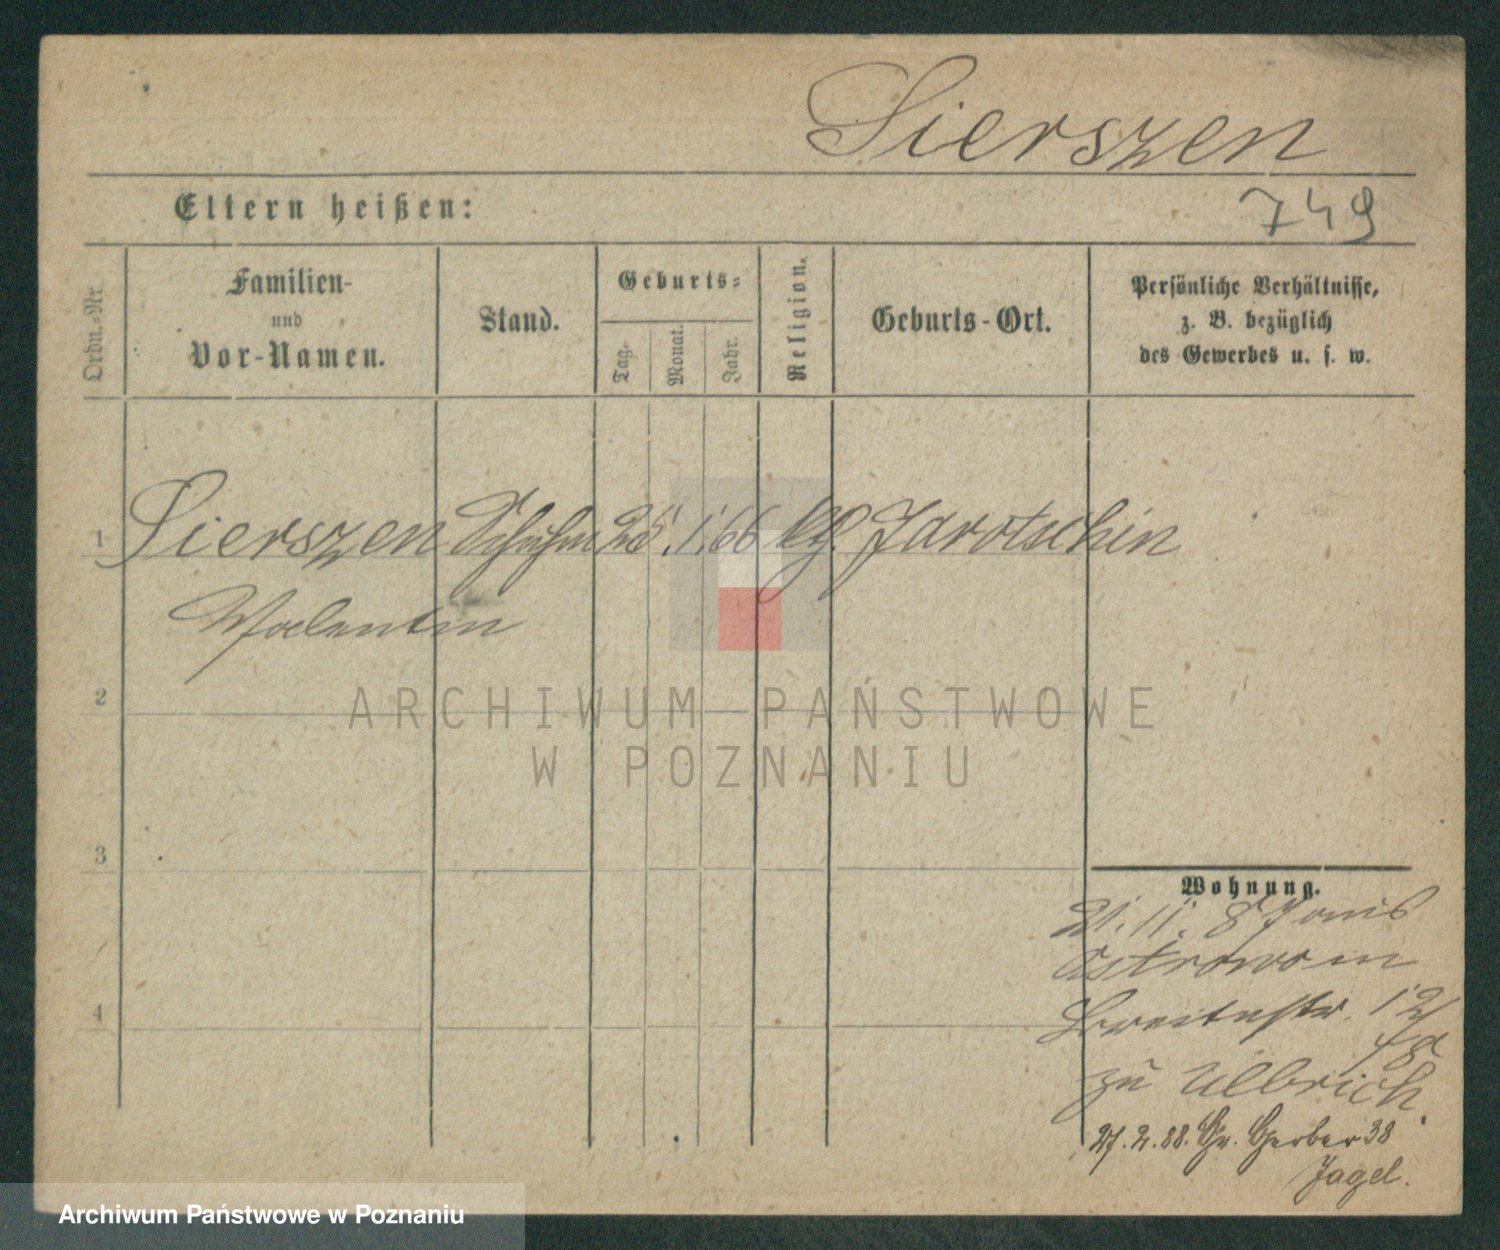 Sierszen
Eltern heißen:
749
Ordn.-Nr.
Familien-
und
Vor-Namen.
Stand.
Geburts-
Tag.
Monat.
Jahr.
Religion.
Geburts-Ort.
Persönliche Verhältnisse,
z. B. bezüglich
des Gewerbes u. s. w.
1 Sierszen Schuhm 25. 1. 66 kth. Jarotschin
Walentin
2
ARCHIWUM PAŃSTWOWE
W POZNANIU
3
Wohnung.
21. 11. 87
Ostrowo in
4
Breitestr. 12/
zu Ullbrich.
27. 2. 88. Gr. Gerber 38
Jagel.
Archiwum Państwowe w Poznaniu